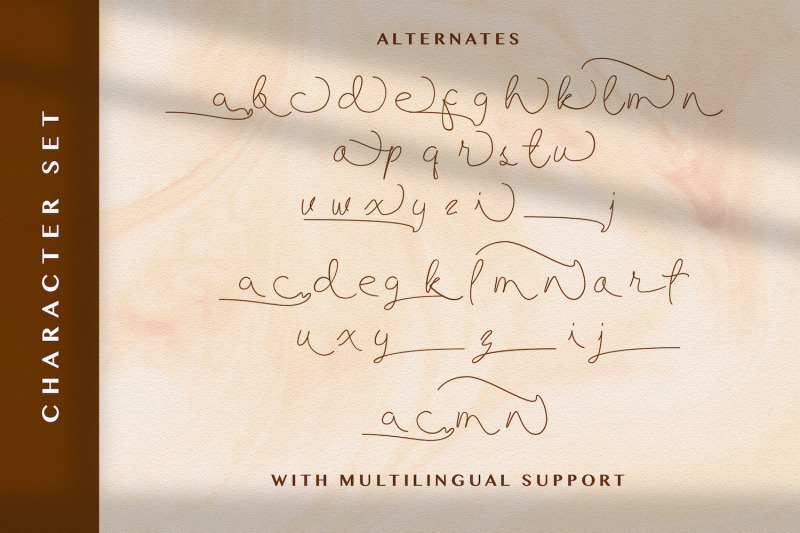 CHARACTER SET
ALTERNATES
a b c d e f g h k l m n
o p q r s t u
v w x y z i j
a c d e g k l m n a r t
u x y z i j
a c m n
WITH MULTILINGUAL SUPPORT